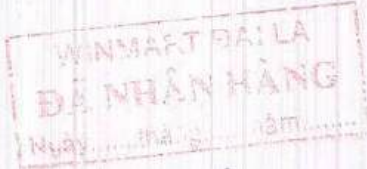 WINMART ĐẠI LA
ĐÃ NHẬN HÀNG
Ngày.......tháng.......năm.......